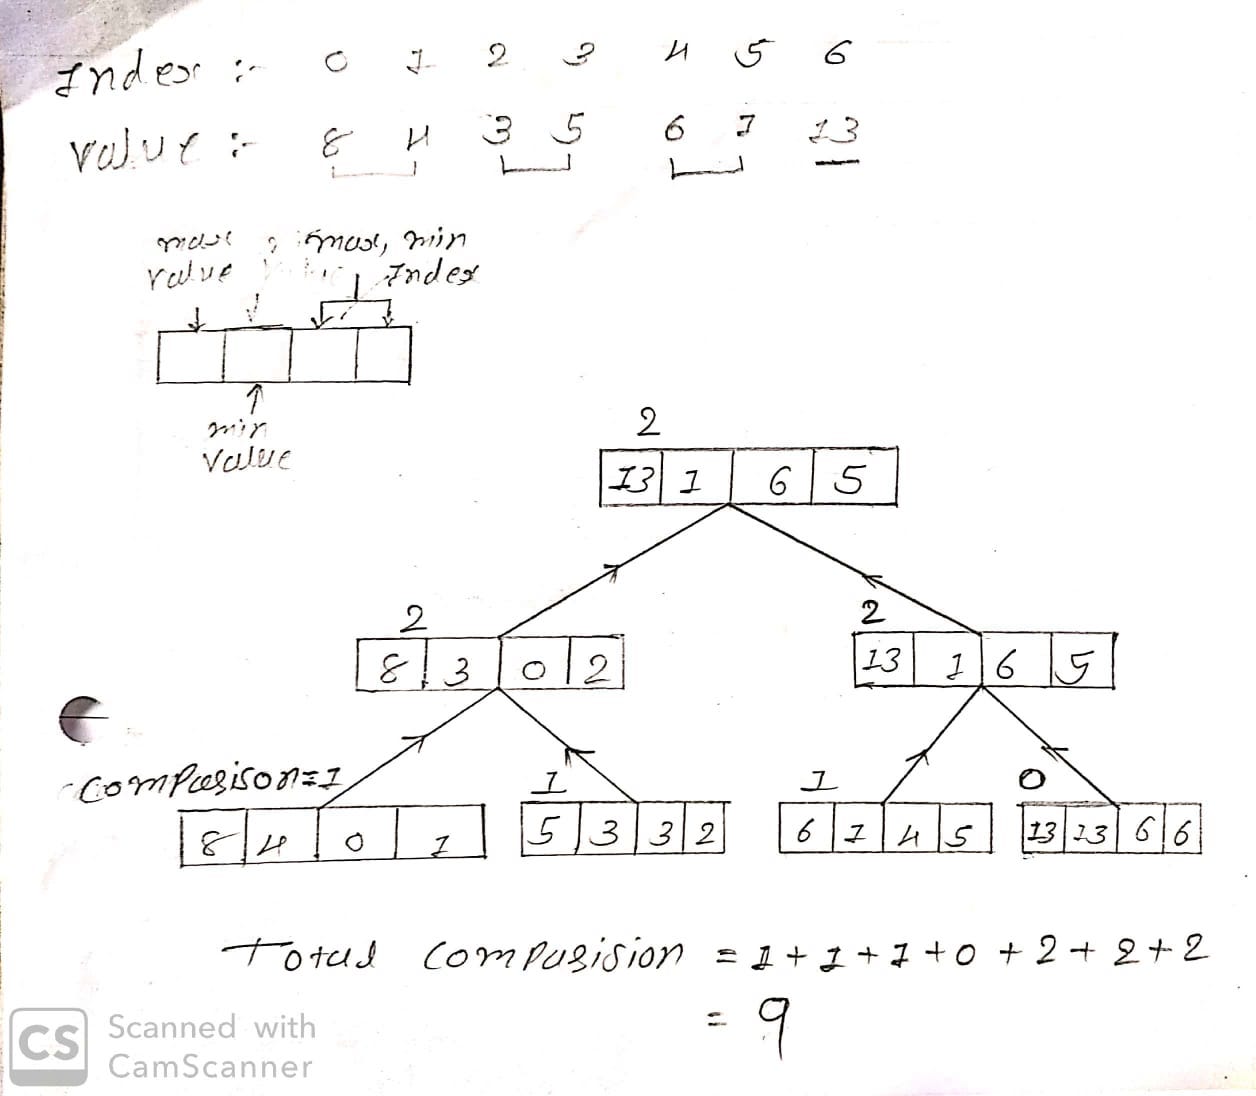 Index :- 0 1 2 3 4 5 6
value :- 8 4 3 5 6 1 13
max , max, min
value Index
min
value
2
13 1 6 5
2 2
8 3 0 2 13 1 6 5
Comparison=1 1 1 0
8 4 0 1 5 3 3 2 6 1 4 5 13 13 6 6
Total comparision = 1 + 1 + 1 + 0 + 2 + 2 + 2
= 9
CS Scanned with
CamScanner